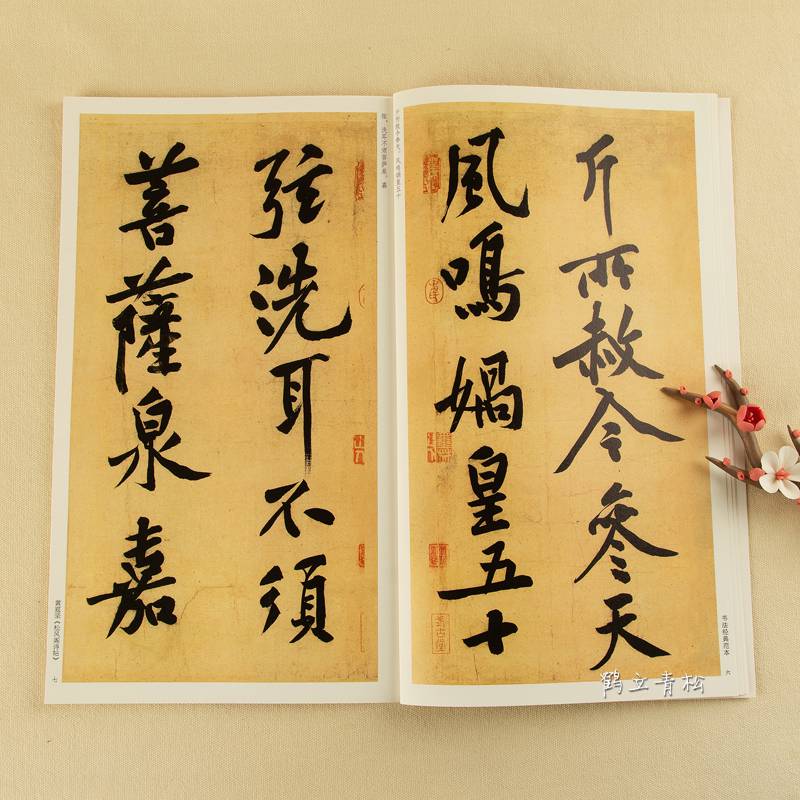 斤所赦今參天
風鳴媧皇五十
弦洗耳不須
菩薩泉嘉
斤所赦今参天。风鸣娲皇五十
弦，洗耳不须菩萨泉。嘉
书法经典范本
六
黄庭坚《松风阁诗帖》
七
鹤立青松